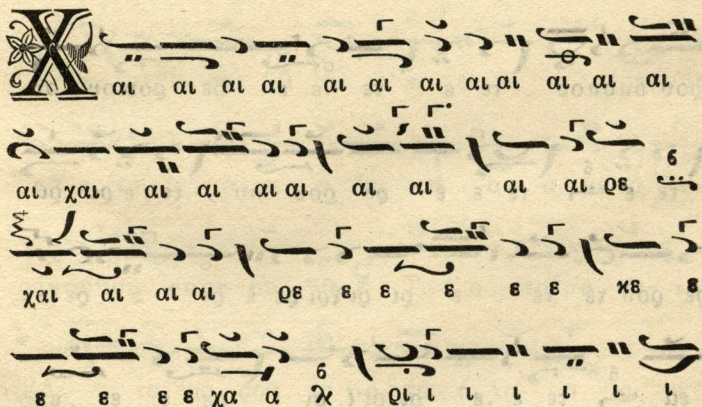 Χ αι αι αι αι αι αι αι αι αι αι αι αι
αι χαι αι αι αι αι αι αι αι αι ρε
χαι αι αι αι ρε ε ε ε ε ε κε ε
ε ε ε ε χα α ρι ι ι ι ι ι